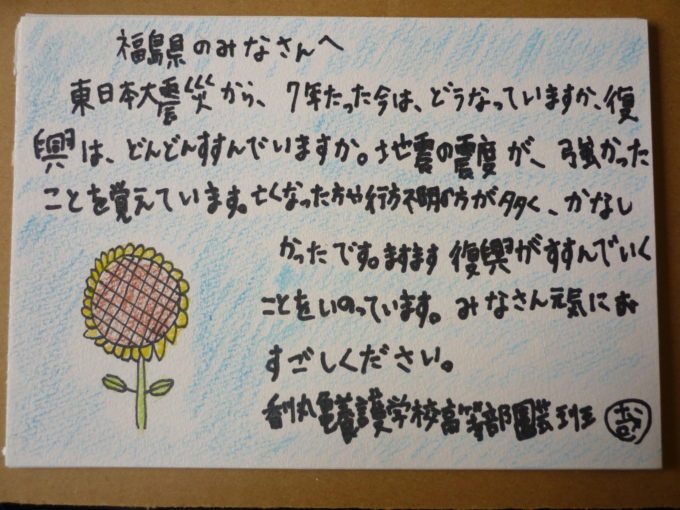 福島県のみなさんへ
東日本大震災から、7年たった今は、どうなっていますか、復
興は、どんどんすすんでいますか。地震の震度が、強かった
ことを覚えています。亡くなった方や行方不明の方が多く、かなし
かったです。ますます復興がすすんでいく
ことをいのっています。みなさん元気にお
すごしください。
香川丸亀養護学校高等部園芸班